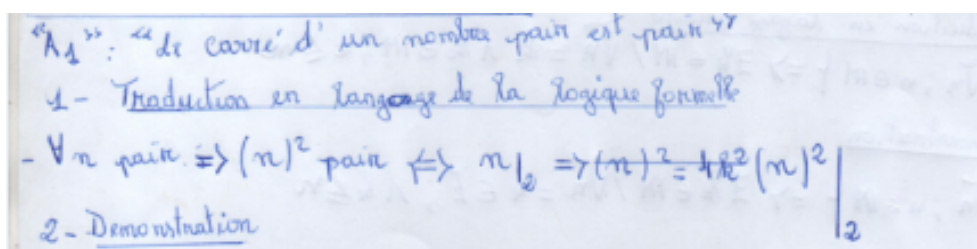 "A1" : "Le carré d'un nombre pair est pair"
1 - Traduction en langage de la logique formelle
- ∀n pair. => (n)² pair <=> n|₂ => (n)² = 4k² (n)² |₂
2 - Demonstration